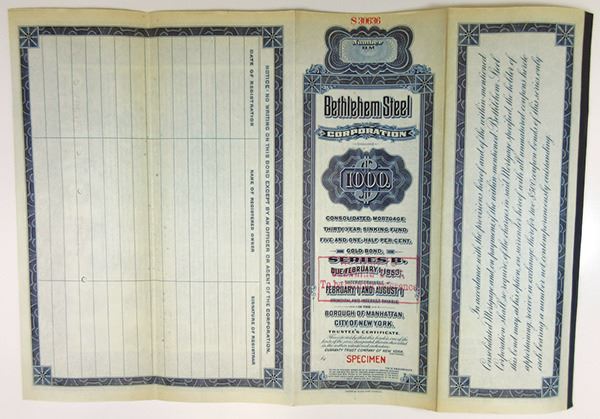 DATE OF REGISTRATION
NAME OF REGISTERED OWNER
SIGNATURE OF REGISTRAR
NOTICE: NO WRITING ON THIS BOND EXCEPT BY AN OFFICER OR AGENT OF THE CORPORATION.
S 30636
NUMBER
Bethlehem Steel
CORPORATION
$1000.
CONSOLIDATED MORTGAGE
THIRTY-YEAR SINKING FUND
FIVE AND ONE-HALF PER CENT.
GOLD BOND,
SERIES B,
DUE FEBRUARY 1, 1953.
INTEREST PAYABLE
FEBRUARY 1 AND AUGUST 1
PRINCIPAL AND INTEREST PAYABLE
IN THE
BOROUGH OF MANHATTAN,
CITY OF NEW YORK.
TRUSTEE'S CERTIFICATE.
GUARANTY TRUST COMPANY OF NEW YORK,
By
SPECIMEN
In accordance with the provisions hereof and of the within mentioned
Consolidated Mortgage and upon payment, if the within mentioned Bethlehem Steel
Corporation shall so require, of the charges in said Mortgage specified, the holder of
this bond may at his option, on surrender hereof with all unmatured coupons hereto
appertaining, receive in exchange therefor two $500 coupon bonds of this series only
each bearing a number not contemporaneously outstanding.